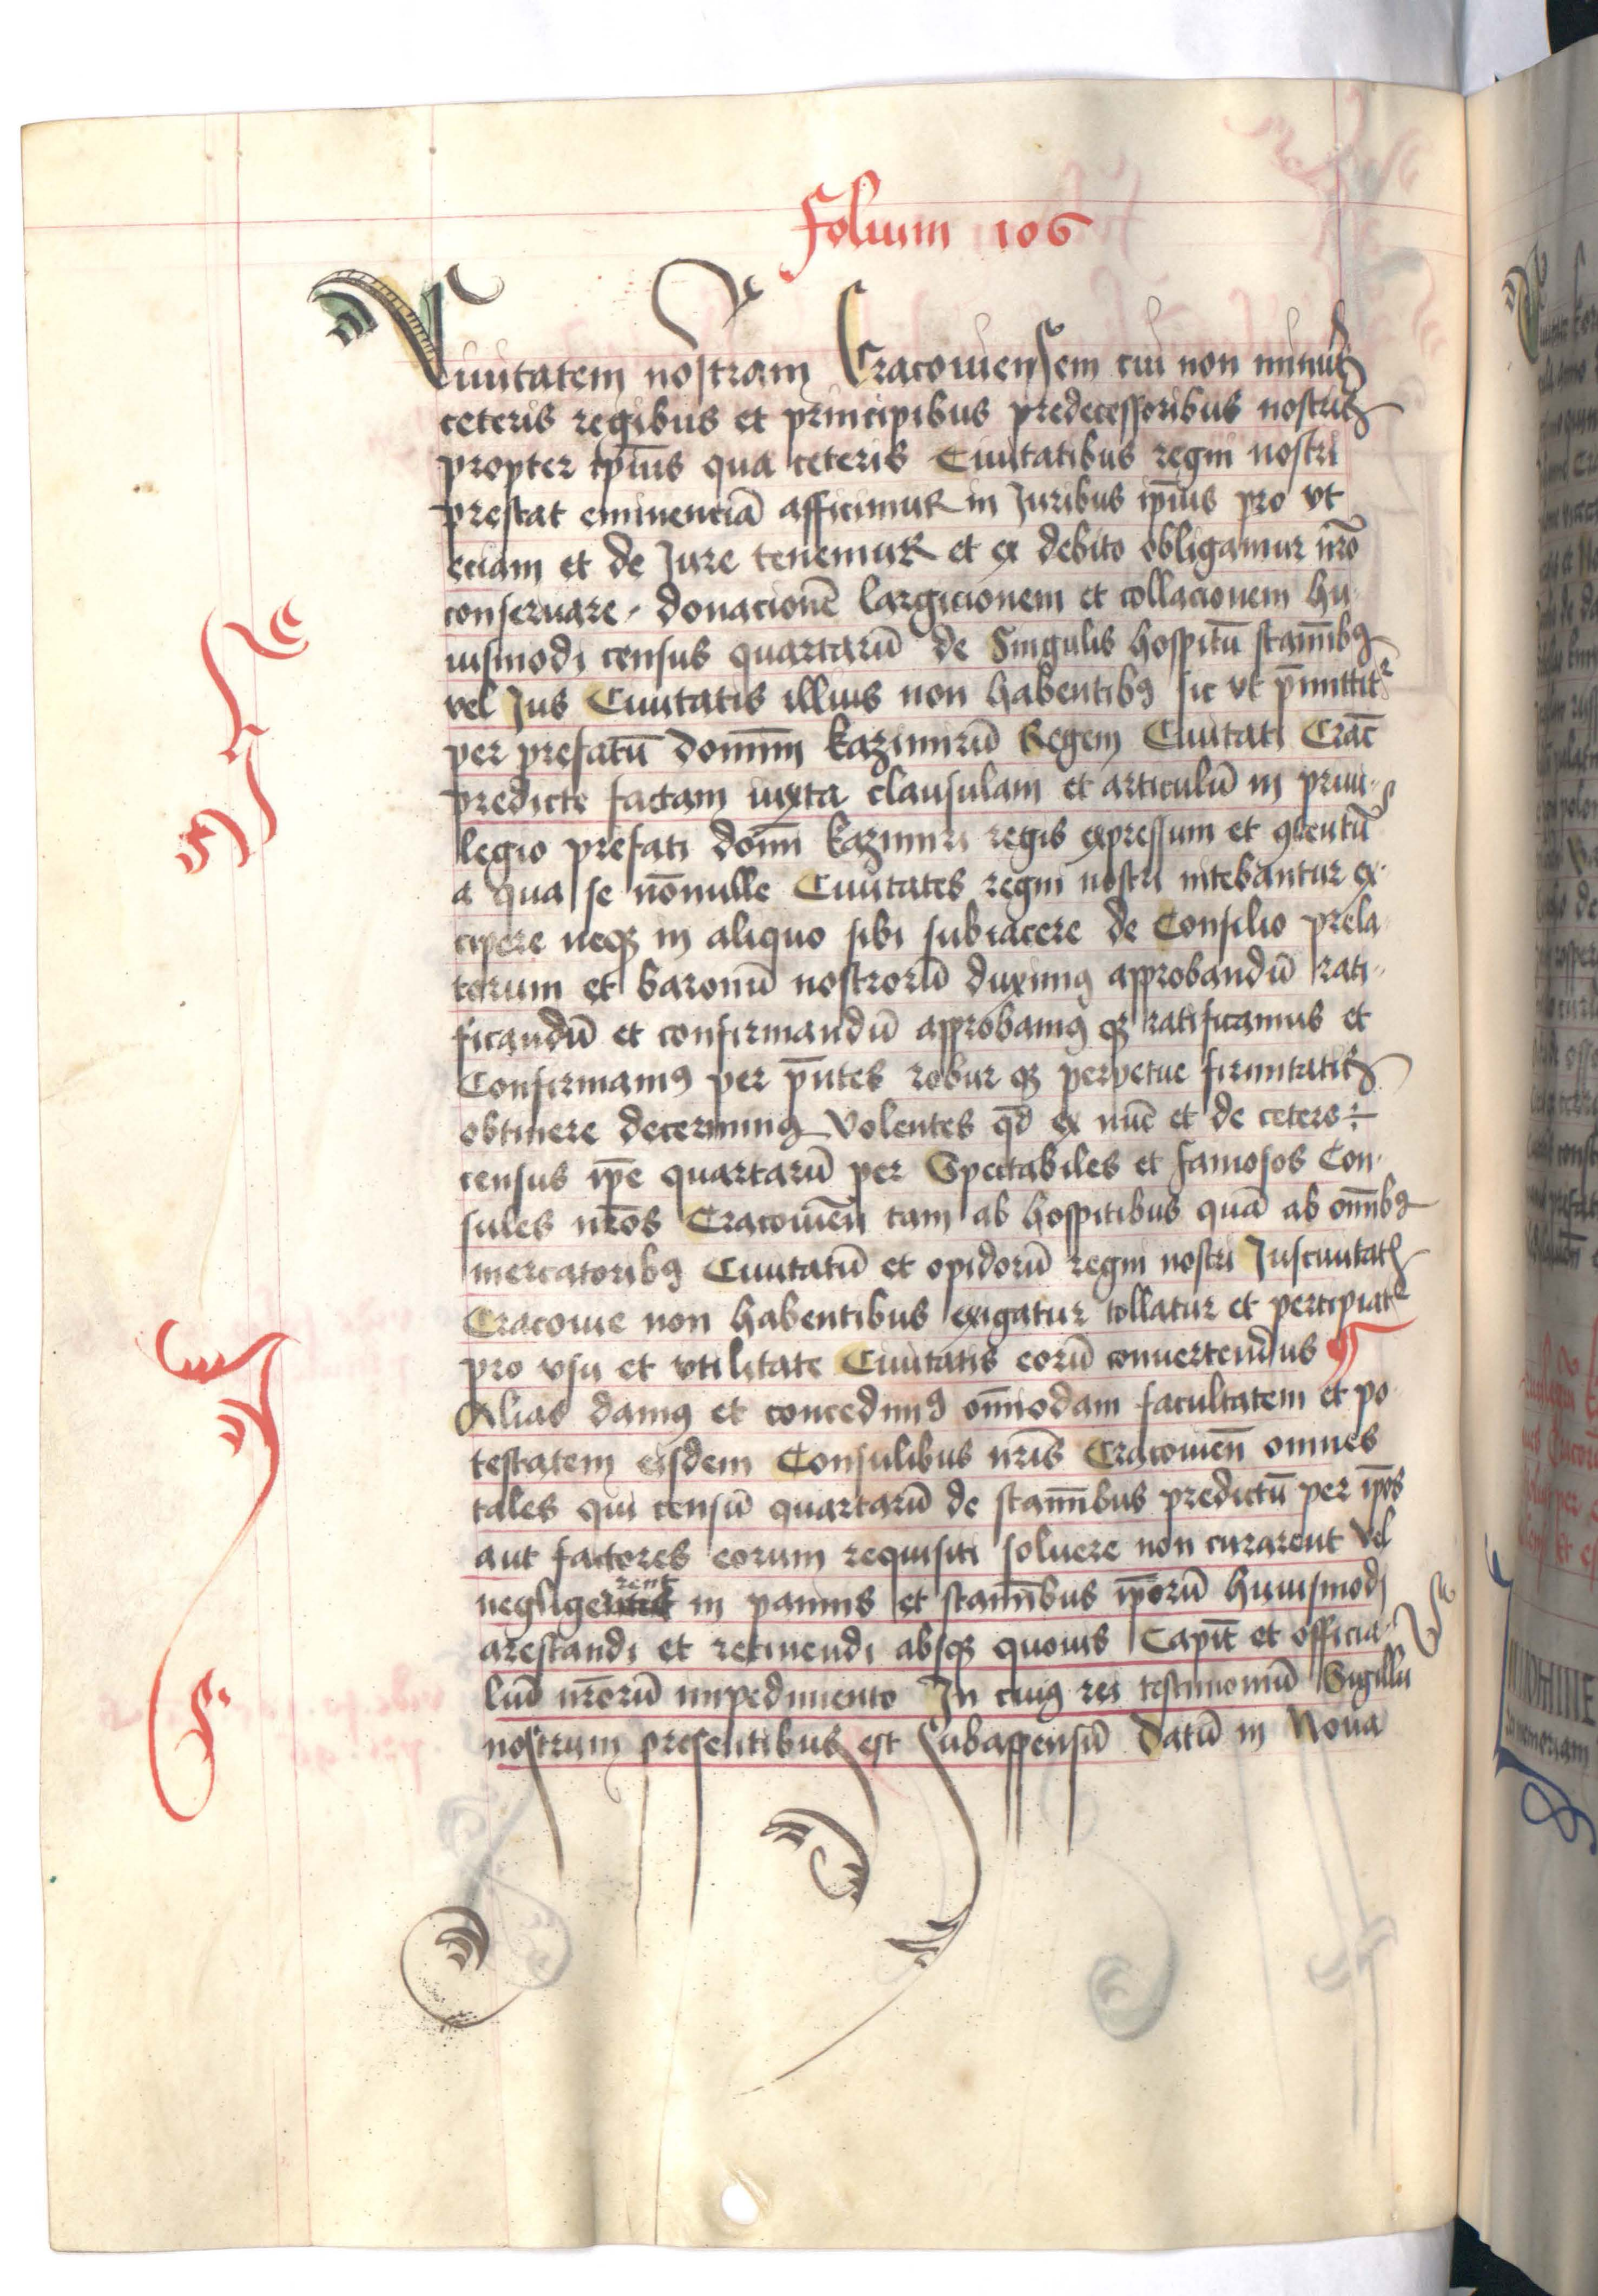 Folium 106
Ciuitatem nostram Cracouiensem cui non minus
ceteris regibus et principibus predecessoribus nostris
propter ipius qua ceteris Ciuitatibus regni nostri
prestat eminenciā afficimur in Juribus ipius pro vt
eciam et de Jure tenemur et ex debito obligamur nr̄o
conseruare donacionē largicionem et collacionem hu
iusmodi census quartarū de Singulis hospitū stam̄ibꝯ
vel Jus Ciuitatis illius non habentibꝯ sic vt p̄mittitr
per prefatū dominū kazimirū Regem Ciuitati Crac̄
predicte factam iuxta clausulam et articulū in priui-
legio prefati domī kazimiri regis expressum et ꝯtentū
a qua se nōnulle Ciuitates regni nostri nitebantur ex-
cipere neqꝫ in aliquo sibi subiacere de Consilio prela
torum et baronū nostrorū duximꝯ approbandū rati-
ficandū et confirmandū approbamꝯ qꝫ ratificamus et
Confirmamꝯ per pn̄tes robur qꝫ perpetue firmitatis
obtinere decernimꝯ Volentes qd̄ ex nūc et de cetero
census ip̄e quartarū per Spectabiles et famosos Con-
sules nr̄os Cracouien̄ tam ab hospitibus quā ab om̄ibꝯ
mercatoribꝯ Ciuitatū et opidorū regni nostri Jusciuitatꝭ
Cracouie non habentibus exigatur tollatur et percipiatr
pro vsu et vtilitate Ciuitatis eorū conuertendus
Alias damꝯ et concedimꝯ om̄imodam facultatem et po
testatem eisdem Consulibus nr̄is Cracouien̄ omnes
tales qui censū quartarū de stam̄ibus predictū per ip̄os
aut factores eorum requisiti soluere non curarent vel
negligerent in pannis et stam̄ibus ip̄orū huiusmodi
arestandi et retinendi absqꝫ quouis Capit̄ et officia-
liū nr̄orū impedimento In cuiꝯ rei testimoniū Sigillū
nostrum presentibus est Subappensū Datū in Noua